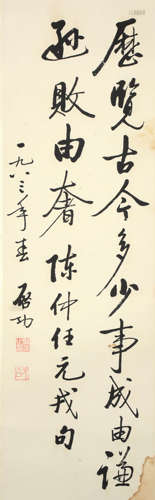 歷覽古今多少事成由謙
遜敗由奢 陳仲弘元戎句
一九八三年春 启功